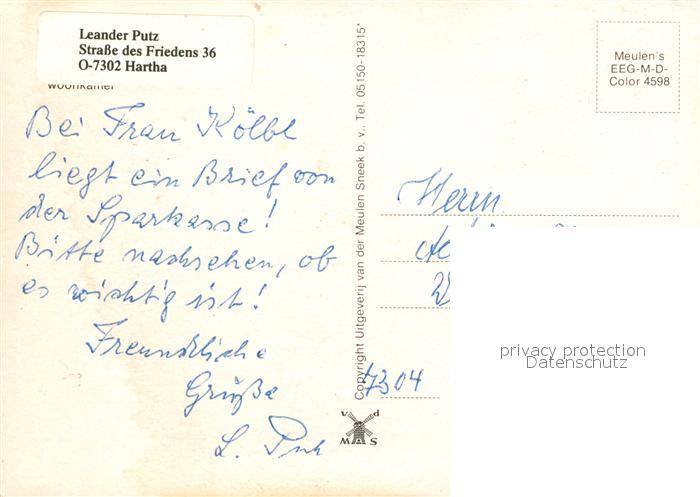 Leander Putz
Straße des Friedens 36
O-7302 Hartha
woonkamer
Bei Frau Kölbl
liegt ein Brief von
der Sparkasse!
Bitte nachsehen, ob
es wichtig ist!
Freundliche
Grüße
L. Putz
Copyright Uitgeverij van der Meulen Sneek b. v., Tel. 05150-18315*
Meulen's
EEG-M-D-
Color 4598
Herrn
7304
v d
MAS
privacy protection
Datenschutz